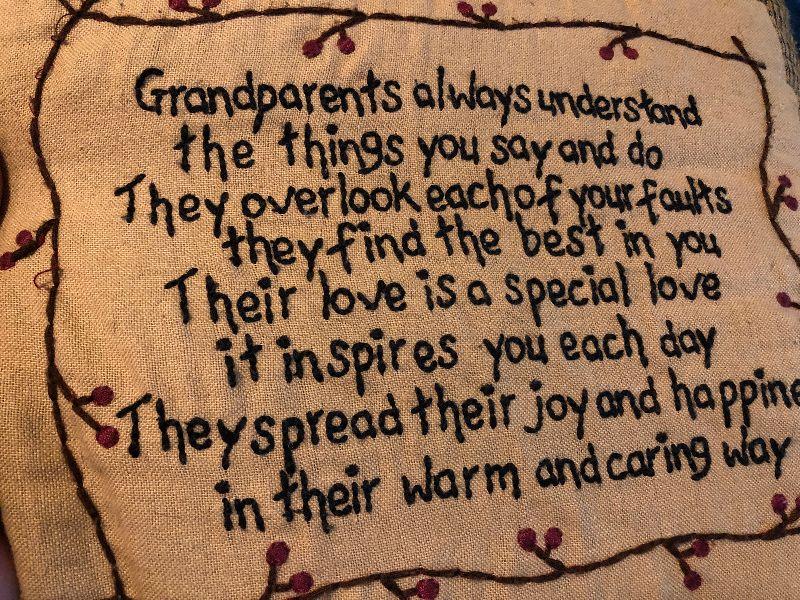 Grandparents always understand
the things you say and do
They overlook each of your faults
they find the best in you
Their love is a special love
it inspires you each day
They spread their joy and happine
in their warm and caring way